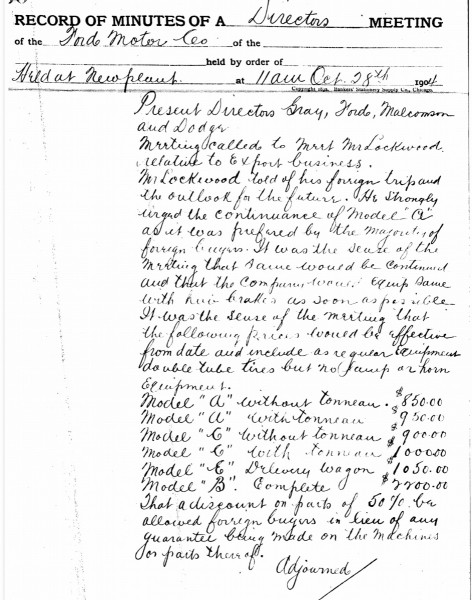 RECORD OF MINUTES OF A Directors MEETING
of the Ford Motor Co of the
held by order of
Held at New plant. at 11 am Oct. 28th 1904
Copyright 1898, Bankers' Stationery Supply Co., Chicago.
Present Directors Gray, Ford, Malcomson
and Dodge
Meeting called to meet Mr Lockwood
relative to Export business.
Mr Lockwood told of his foreign trip and
the outlook for the future. He strongly
urged the continuance of Model "A"
as it was prefered by the majority of
foreign buyers. It was the sense of the
meeting that same would be continued
and that the Company would equip same
with hub brakes as soon as possible
It was the sense of the meeting that
the following prices would be effective
from date and include as regular equipment
double tube tires but no lamp or horn
Equipment.
Model "A" without tonneau. $850.00
Model "A" with tonneau $950.00
Model "C" without tonneau $900.00
Model "C" with tonneau $1000.00
Model "E" Delevery wagon $1050.00
Model "B". Complete $2200.00
That a discount on parts of 50% be
allowed foreign buyers in lieu of any
guarantee being made on the machines
or parts thereof.
Adjourned